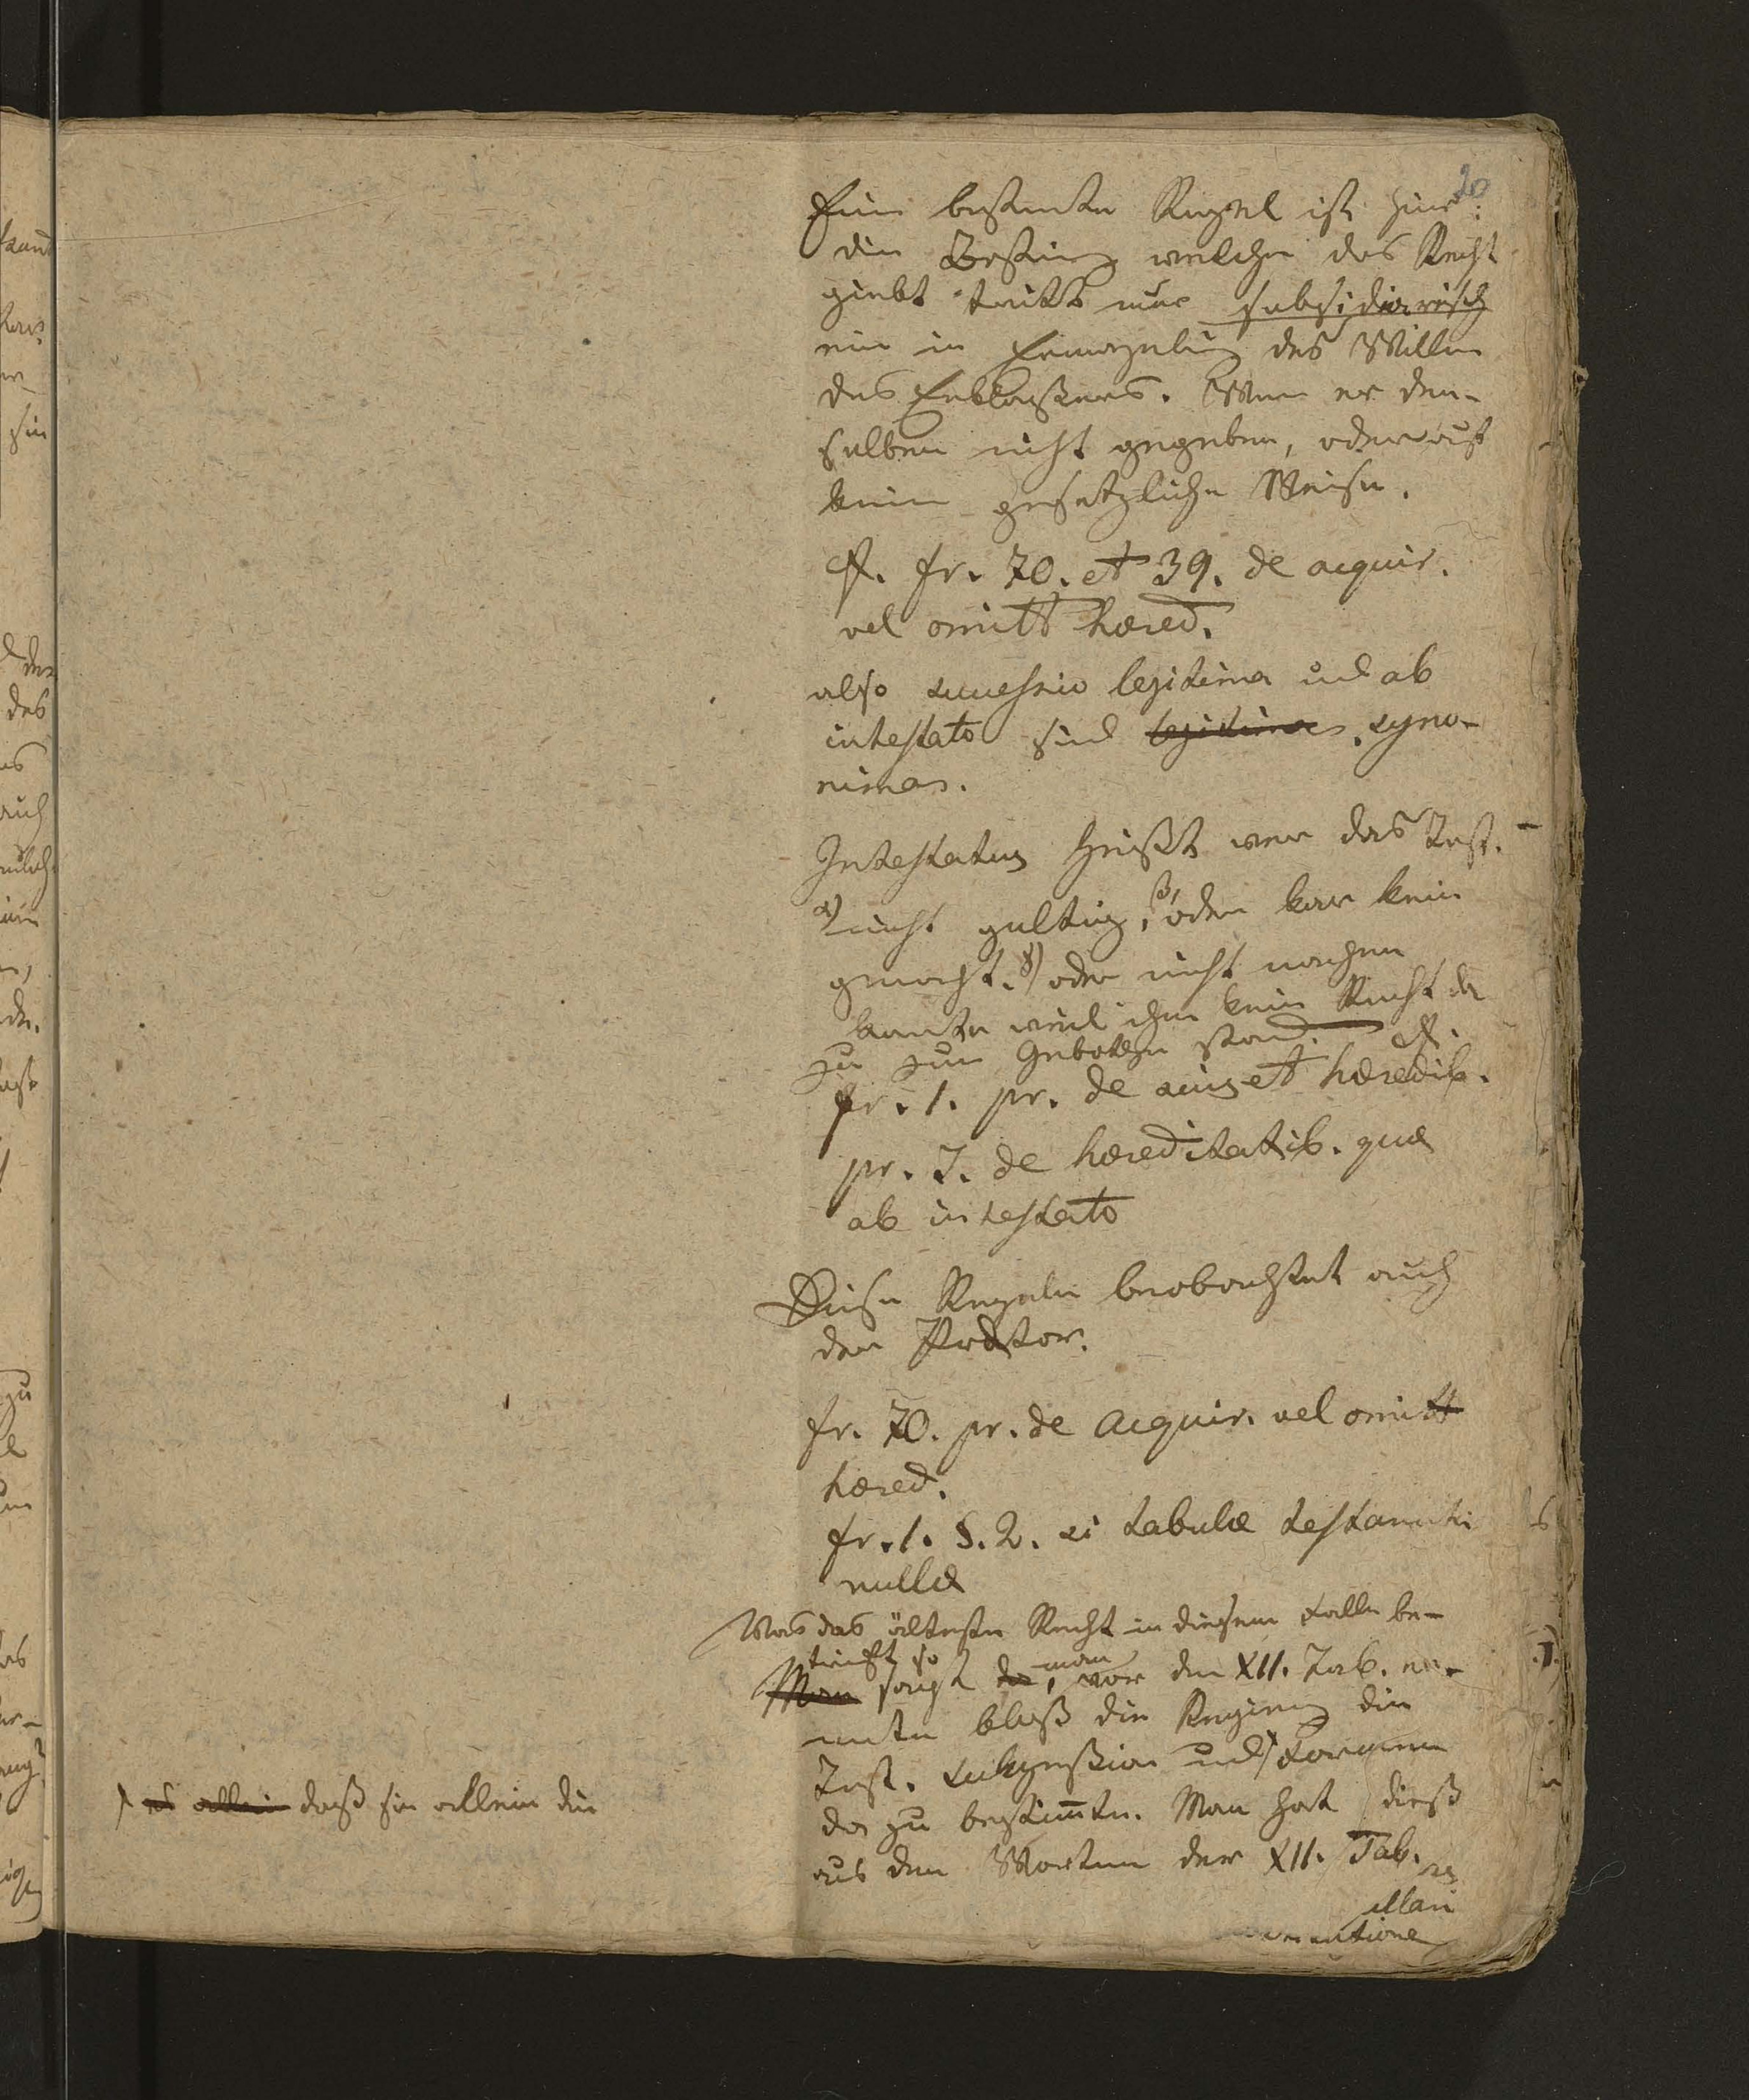 20
Eine bestimte Regel ist hier:
die Bestim̅g welche das Recht
giebt tritt nur subsidiarisch
ein in Ermanglung des Willen
des Erblaßers. Wenn er den-
selben nicht gegeben, oder auf
keine gesetzliche Weise.
cf. fr. 70. et 39. de acquir.
vel omitt hæred.
also successio legitima und ab
intestato sind legitima syno-
nima.
Intestatus heißt wer das Test.
α) nicht gultig, β) oder gar kein
gemacht. γ) oder nicht machen
konnte weil ihm kein Recht da
zu zum Geboten stand. cf.
fr. 1. pr. de suis et hæredib.
pr. J. de hæreditatib. quæ
ab intestato
Diese Regeln beobachtet auch
der Prætor.
fr. 70. pr. de acquir. vel omitt
hæred.
fr. 1. §. 2. si tabulæ testamenti
nullæ
Was das älteste Recht in diesem Falle be-
trift so
Man sagt man, vor den XII. Tab.
bloß die
Test. und Formen
da zu bestim̅te. Man hat dieß
aus den Worten der XII. Tab.
es allein daß sie allein die